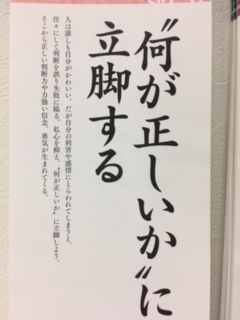 〝何が正しいか〟に
立脚する
人は誰しも自分がかわいい。だが自分の利害や感情にとらわれてしまうと、
往々にして判断を誤り失敗に陥る。私心を抑え、〝何が正しいか〟に立脚しよう。
そこから正しい判断力や力強い信念、勇気が生まれてくる。